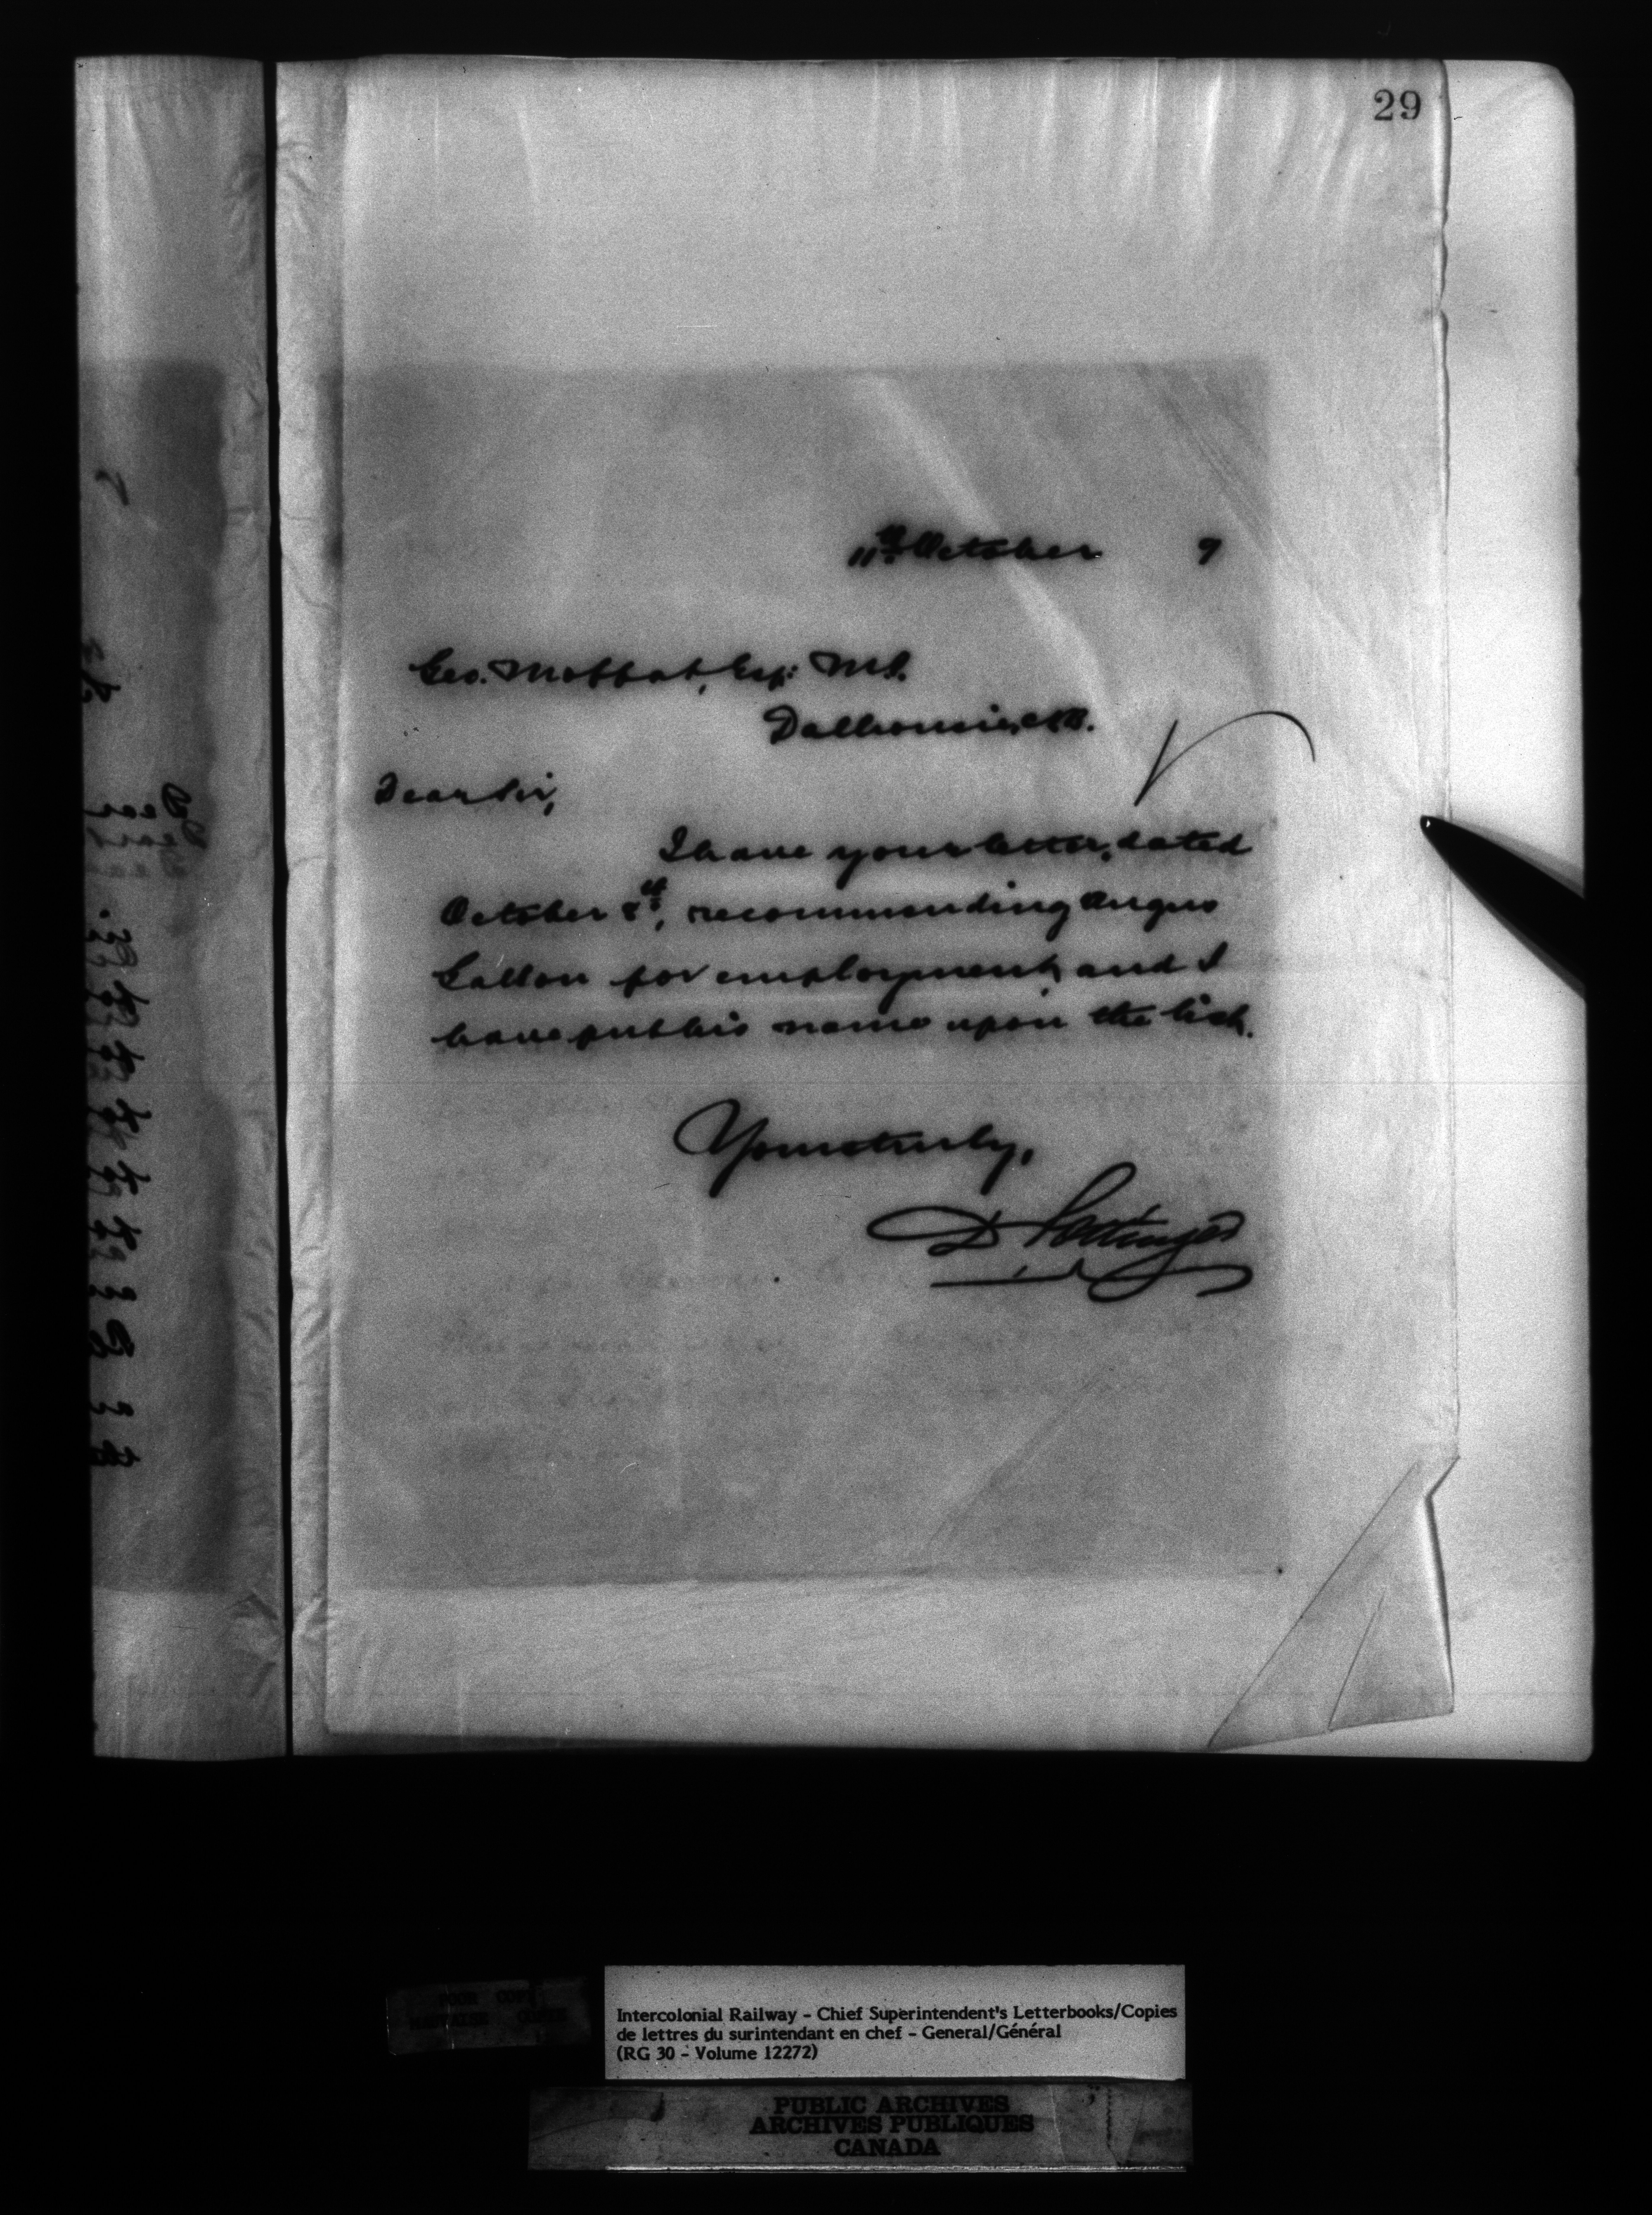 29
11th October 7
Geo. Moffat, Esq: M.P.
Dalhousie, N.B.
Dear Sir,
I have your letter, dated
October 8th, recommending Angus
for employment, and I
have put his name upon the list.
Yours truly,
D Pottinger
Intercolonial Railway - Chief Superintendent's Letterbooks/Copies
de lettres du surintendant en chef - General/Général
(RG 30 - Volume 12272)
PUBLIC ARCHIVES
ARCHIVES PUBLIQUES
CANADA